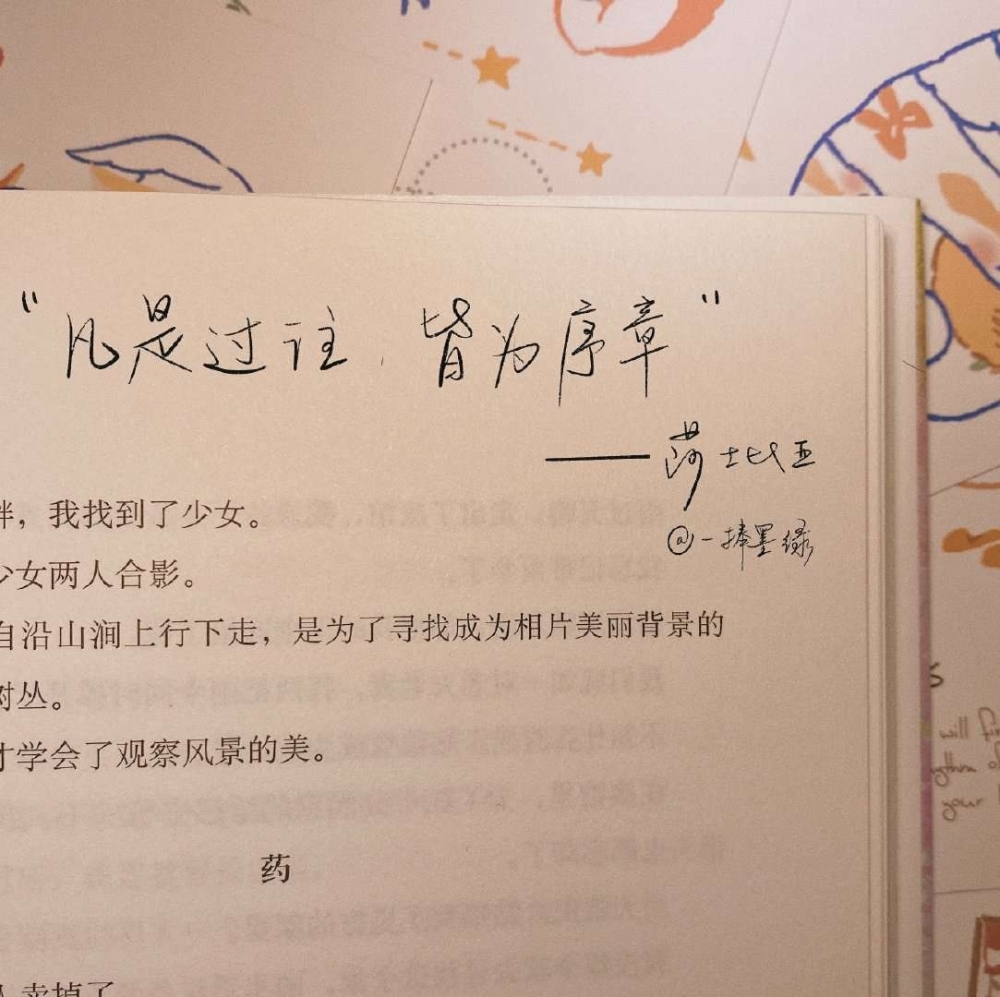 "凡是过往，皆为序章"
——莎士比亚
@一捧墨绿
，我找到了少女。
少女两人合影。
自沿山涧上行下走，是为了寻找成为相片美丽背景的
树丛。
才学会了观察风景的美。
药
卖掉了